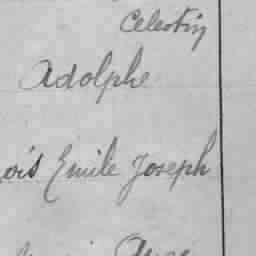 Celestin
Adolphe
ois Emile Joseph